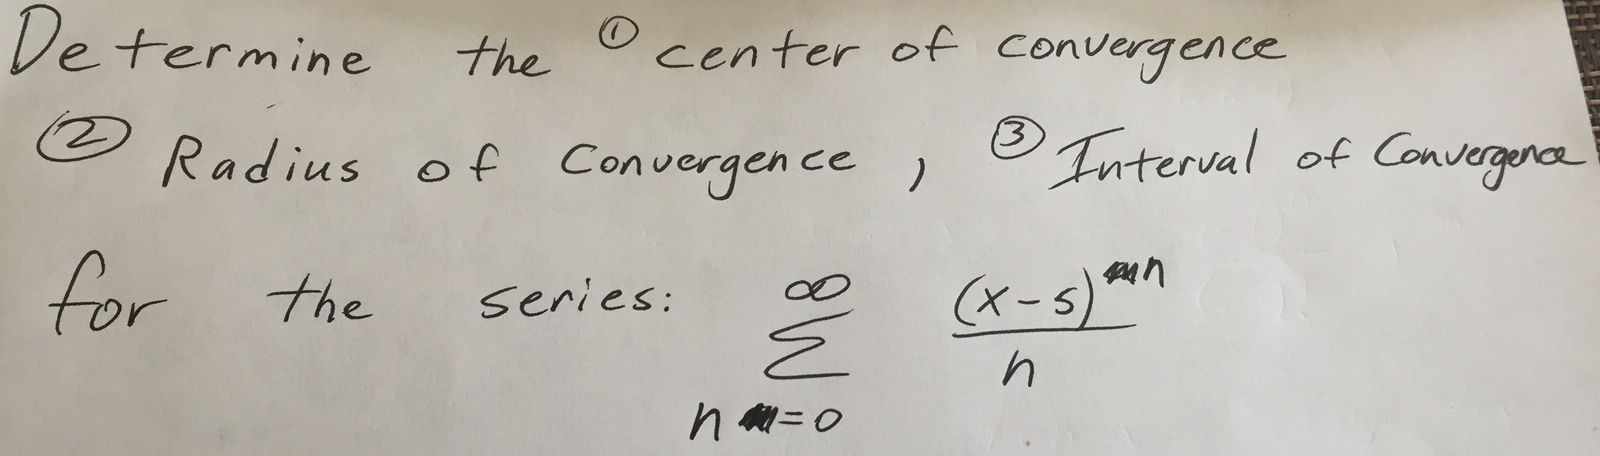 Determine the ① center of convergence
② Radius of Convergence , ③ Interval of Convergence
for the series: ∞ ∑ n=0 (x-5)^n / n